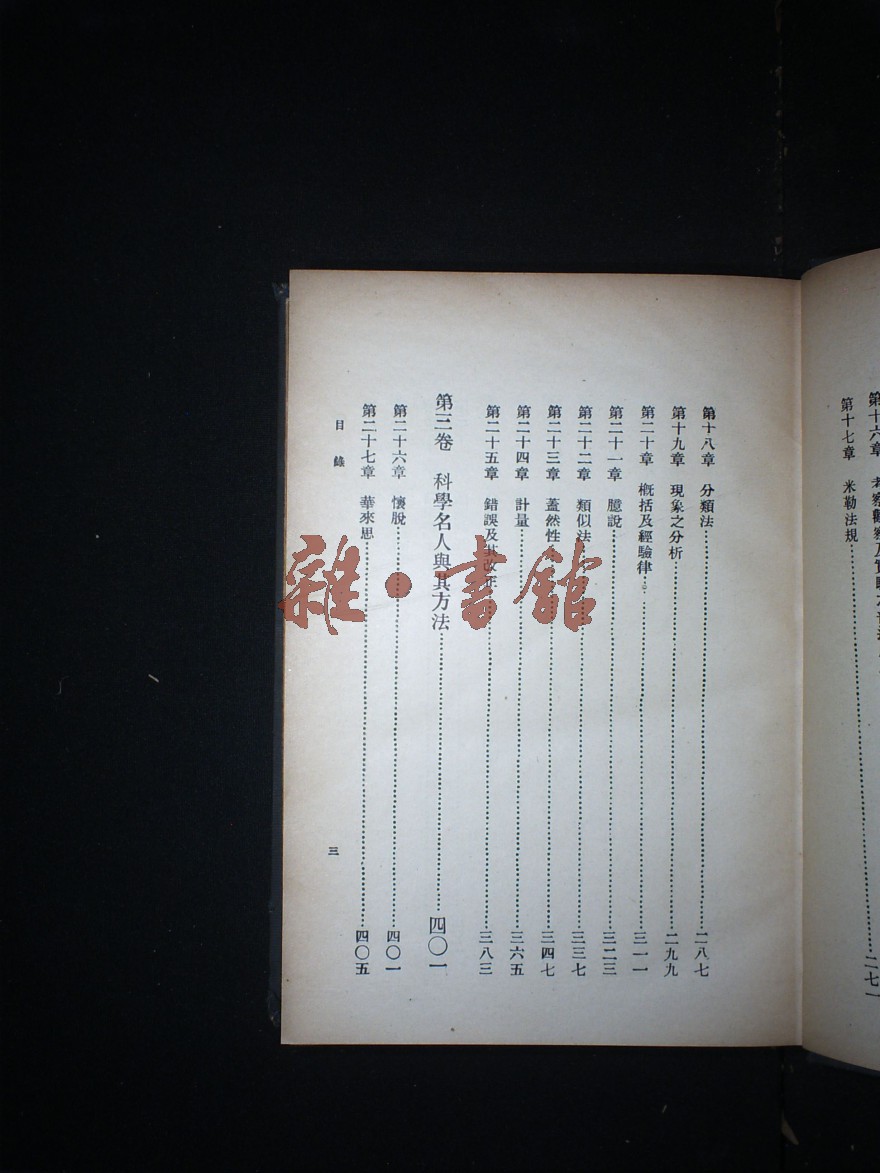 第十六章
第十七章 米勒法規 二七一
第十八章 分類法 二八七
第十九章 現象之分析 二九九
第二十章 概括及經驗律 三一一
第二十一章 臆說 三二三
第二十二章 類似法 三三七
第二十三章 蓋然性 三四七
第二十四章 計量 三六五
第二十五章 錯誤及其改正 三八三
第三卷 科學名人與其方法 四〇一
第二十六章 懷脫 四〇一
第二十七章 華來思 四〇五
目錄 三
雜·書館